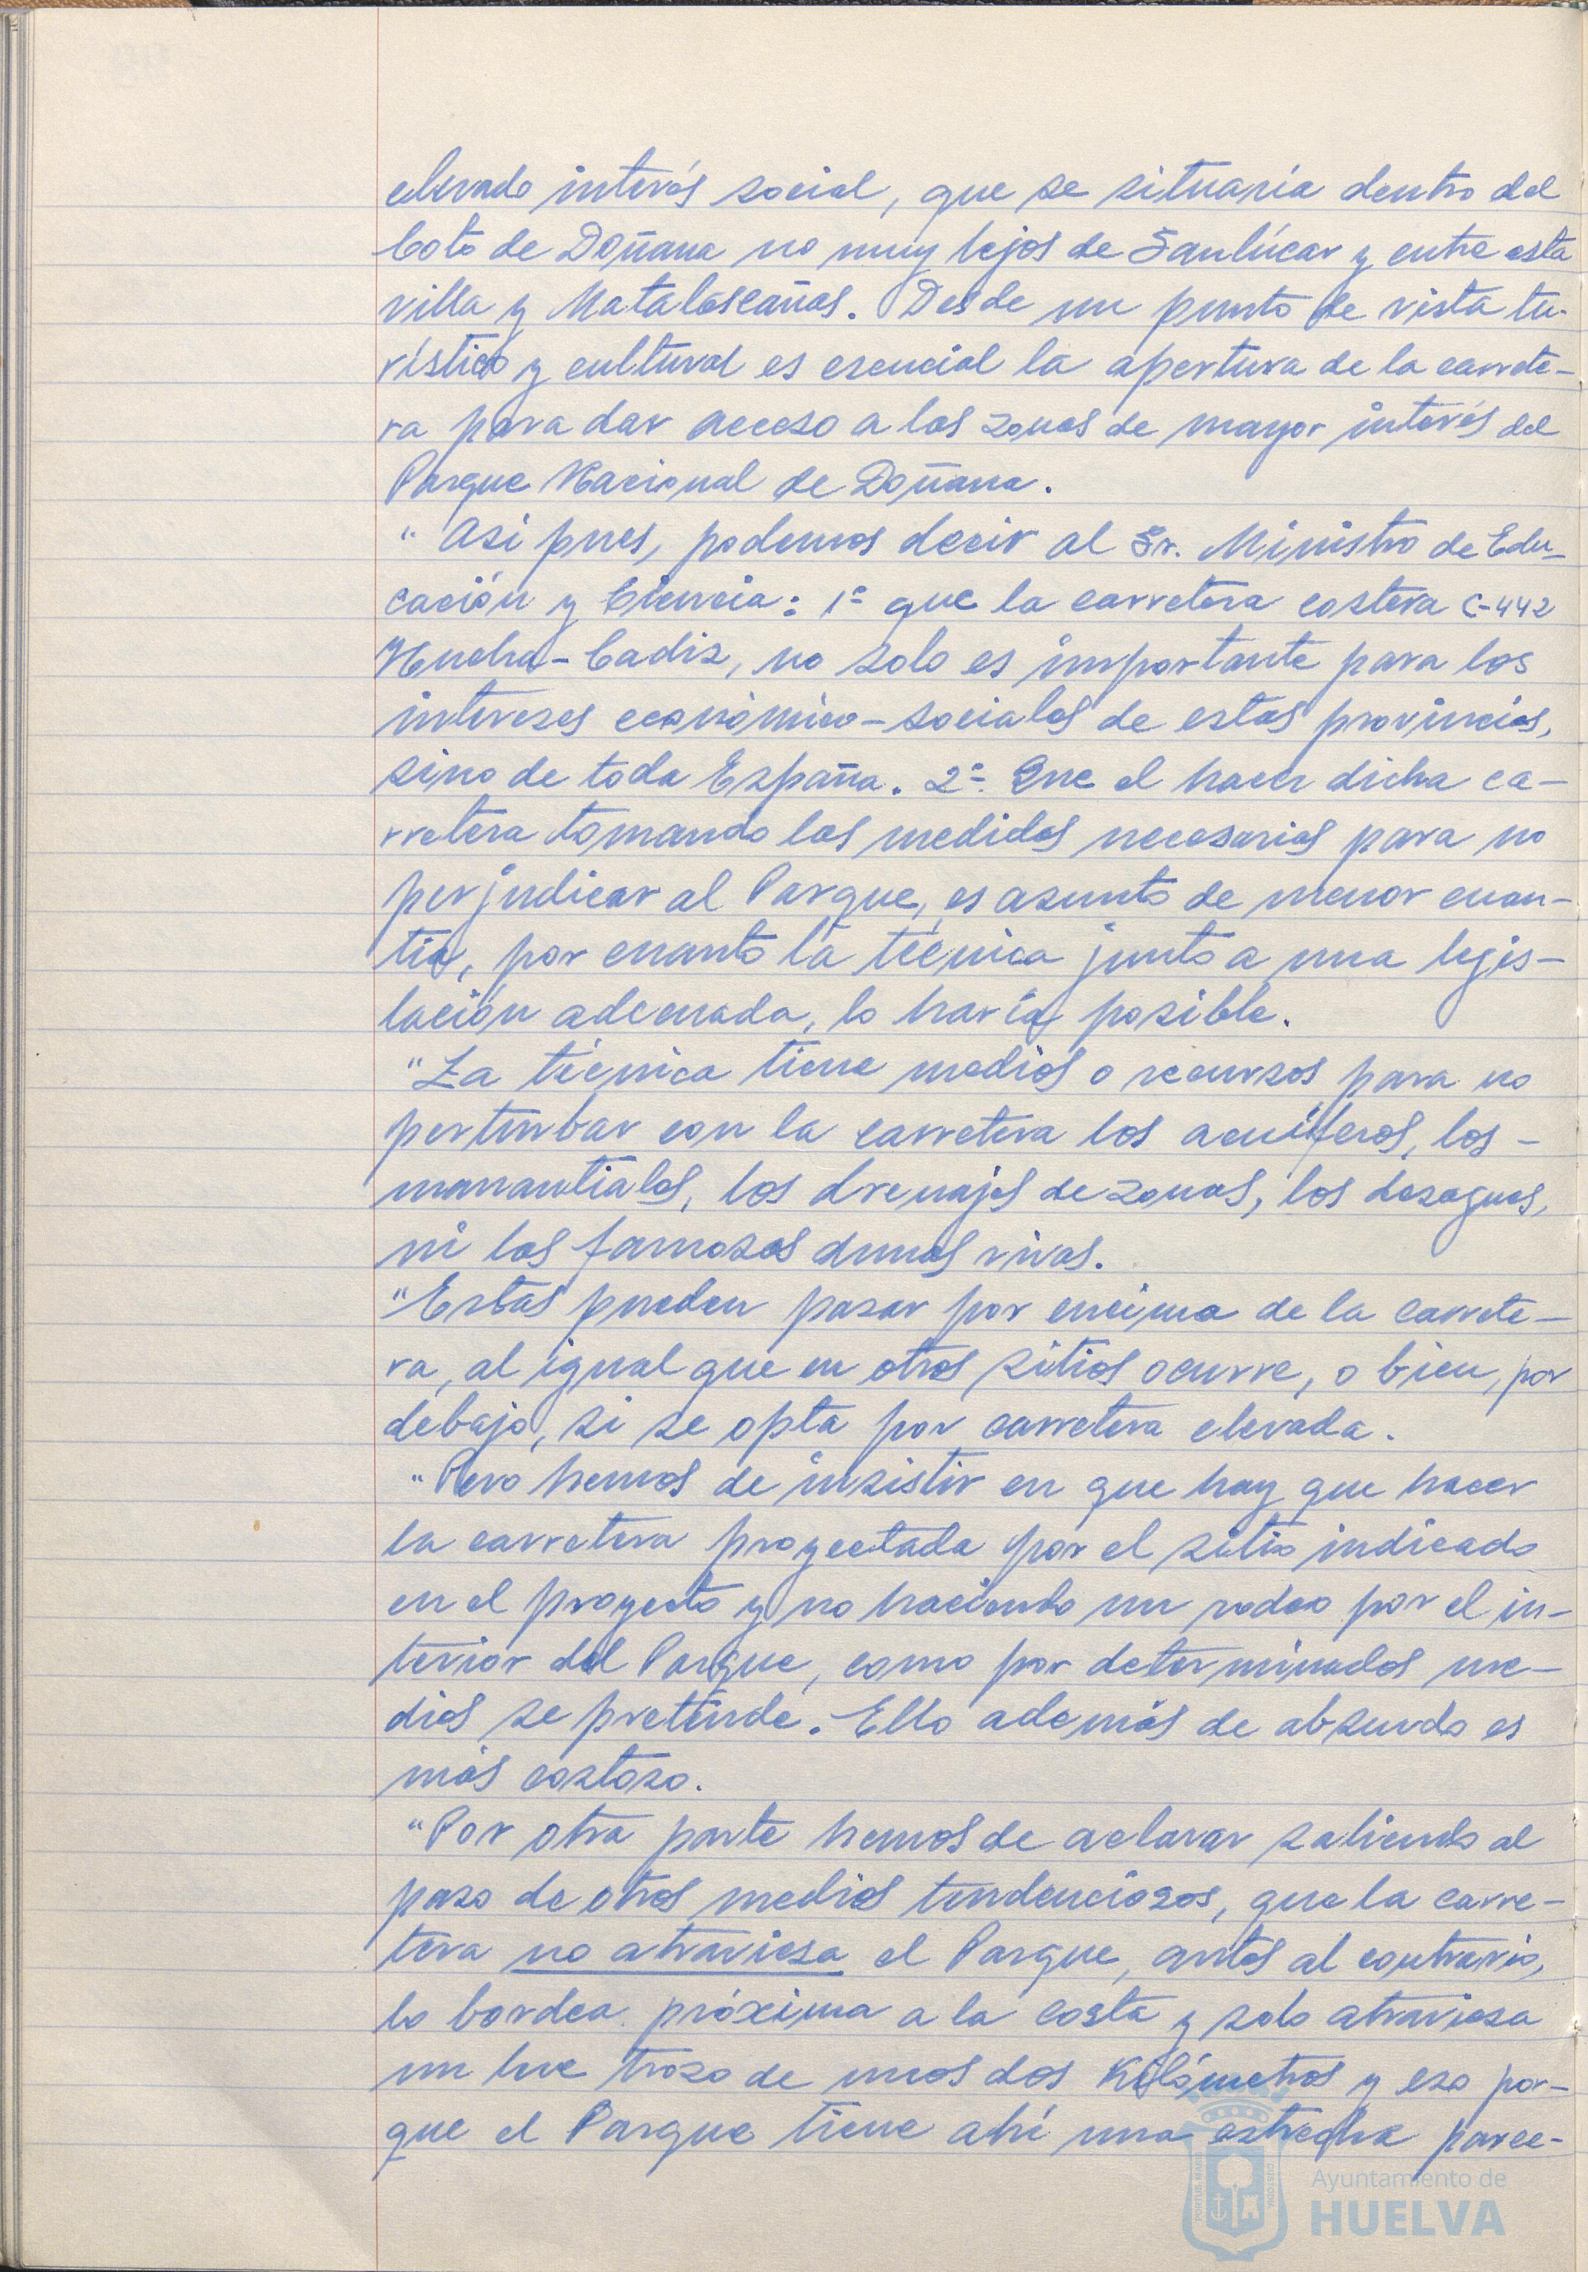 elevado interés social, que se situaría dentro del
Coto de Doñana no muy lejos de Sanlúcar y entre esta
villa y Matalascañas. Desde un punto de vista tu-
rístico y cultural es esencial la apertura de la carrete-
ra para dar acceso a las zonas de mayor interés del
Parque Nacional de Doñana.
" Asi pues, podemos decir al Sr. Ministro de Edu-
cación y Ciencia: 1º que la carretera costera C-442
Huelva-Cadiz, no solo es importante para los
intereses económico-sociales de estas provincias,
sino de toda España. 2º. Que el hacer dicha ca-
rretera tomando las medidas necesarias para no
perjudicar al Parque, es asunto de menor cuan-
tía, por cuanto la técnica junto a una legis-
lación adecuada, lo haría posible.
"La técnica tiene medios o recursos para no
perturbar con la carretera los acuíferos, los -
manantiales, los drenajes de zonas, los desagues,
ni las famosas dunas vivas.
"Estas pueden pasar por encima de la carrete-
ra, al igual que en otros sitios ocurre, o bien, por
debajo, si se opta por carretera elevada.
"Pero hemos de insistir en que hay que hacer
la carretera proyectada por el sitio indicado
en el proyecto y no haciendo un rodeo por el in-
terior del Parque, como por determinados me-
dios se pretende. Ello además de absurdo es
más costoso.
"Por otra parte hemos de aclarar saliendo al
paso de otros medios tendenciosos, que la carre-
tera no atraviesa el Parque, antes al contrario,
lo bordea próxima a la costa y solo atraviesa
un trozo de unos dos Kilómetros y eso por-
que el Parque tiene ahí una estrecha parce-
Ayuntamiento de
HUELVA